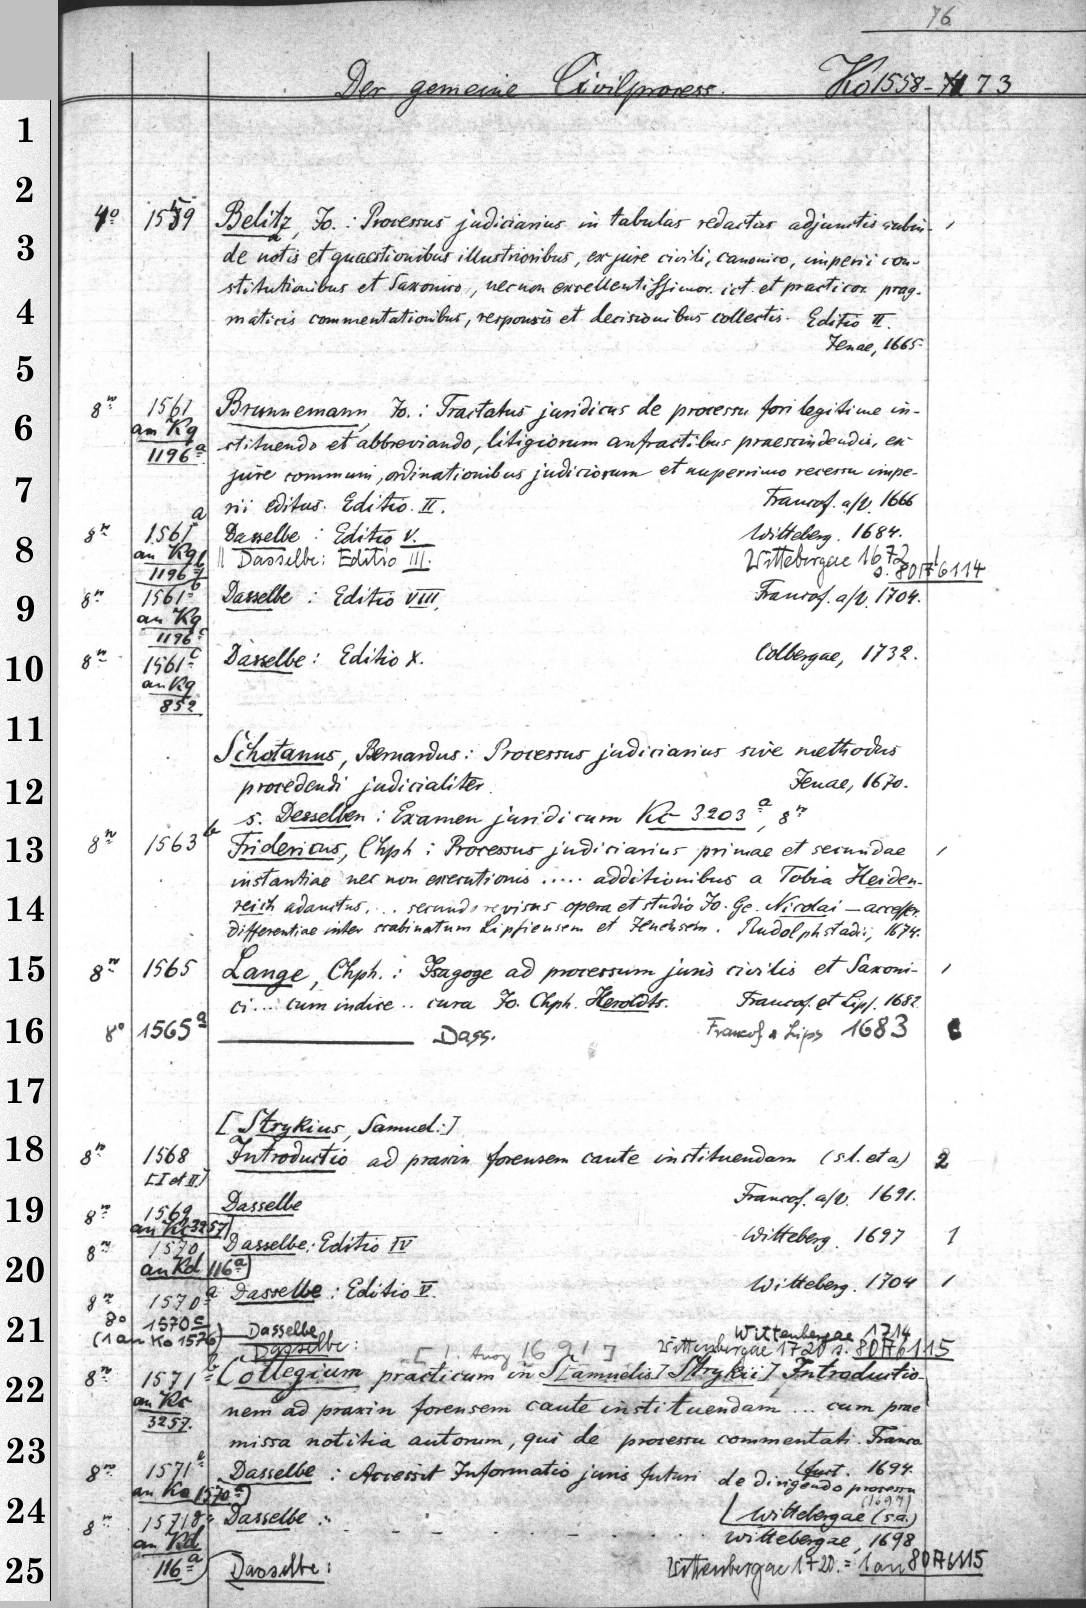 76
Der gemeine Civilprocess. Ko 1558-73
1
2
4° 1559 Belitz, Jo.: Processus judiciarius in tabulas redactus adjunctis subin-
3
de notis et quaestionibus illustrioribus, ex jure civili, canonico, imperii con-
4
stitutionibus et Saxonico, nec non excellentissimor. ict. et practicor. prag-
maticis commentationibus, responsis et decisionibus collectis. Editio II.
Jenae, 1665.
5
8° 1561 Brunnemann, Jo.: Tractatus juridicus de processu fori legitime in-
6
an Kg 1196a stituendo et abbreviando, litigiorum anfractibus praescindendis, ex
jure communi, ordinationibus judiciorum et nuperrimo recessu impe-
7
rii editus. Editio II. Francof. a/V. 1666
8° 1561a Dasselbe: Editio V. Witteberg. 1684.
8
an Kg 1196 || Dasselbe: Editio III. Wittebergae 1672
s. 80 A 6114
8° 1561b Dasselbe: Editio VIII. Francof. a/V. 1704.
9
an Kg
1196c
8° 1561c Dasselbe: Editio X. Colbergae, 1732.
10
an Kg
852
11
Schotanus, Bernardus: Processus judiciarius sive methodus
12
procedendi judicialiter. Jenae, 1670.
s. Desselben: Examen juridicum Kc 3203a, 8°
13
8° 1563b Fridericus, Chph: Processus judiciarius primae et secundae
instantiae nec non executionis ..... additionibus a Tobia Heiden-
14
reich adauctus, ... secundo revisus opera et studio Jo. Ge. Nicolai —
differentiae inter scabinatum Lipsiensem et Jenensem. Rudolphstadii, 1674.
15
8° 1565 Lange, Chph.: Isagoge ad processum juris civilis et Saxoni-
ci ... cum indice .. cura Jo. Chph. Heroldts. Francof. et Lips. 1682
16
8° 1565a Dass. Francof & Lips 1683
17
[Strykius, Samuel:]
18
8° 1568 Introductio ad praxin forensem caute instituendam (s.l. et a) 2
[I et II]
Francof. a/V. 1691.
19
8° 1569 Dasselbe
an Kc 3257)
8° 1570 Dasselbe: Editio IV Witteberg. 1697 1
20
an Kd 116a)
8° 1570a Dasselbe: Editio V. Witteberg. 1704 1
21
8° 1570c Dasselbe Wittenbergae 1714
(1 an Ko 1576)
Dasselbe: Wittenbergae 1720 s. 80 A 6115
1691]
22
8° 1571 Collegium practicum in S[amuelis] Stryk[ii] Introductio-
an Kc
3257.
nem ad praxin forensem caute instituendam ... cum prae
23
missa notitia autorum, qui de processu commentati. Franco
furt. 1694.
8° 1571 Dasselbe: Accessit Informatio juris futuri de dirigendo processu
an Ko 1570a)
24
(1697)
Wittebergae (s.a.)
8° 1571 Dasselbe
an Kd
116a)
Wittebergae, 1698
25
Dasselbe: Wittenbergae 1720. = 1 an 80 A 6115